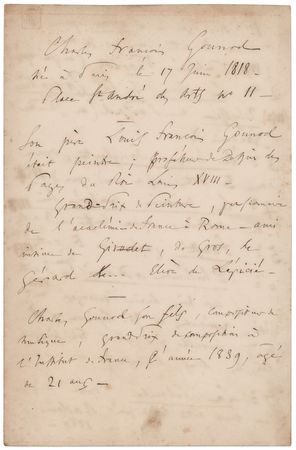 Charles François Gounod
né à Paris le 17 Juin 1818 -
Place St André des Arts no 11 -
Son père Louis François Gounod
était peintre ; professeur de Dessin des
Pages du Roi Louis XVIII -
Grand Prix de Peinture, pensionnaire
de l'académie de france à Rome - ami
intime de Girodet, de Gros, de
Gérard Elève de Lépicié -
Charles Gounod son fils, compositeur de
musique, grand prix de composition à
l'Institut de france, l'année 1839, agé
de 21 ans -